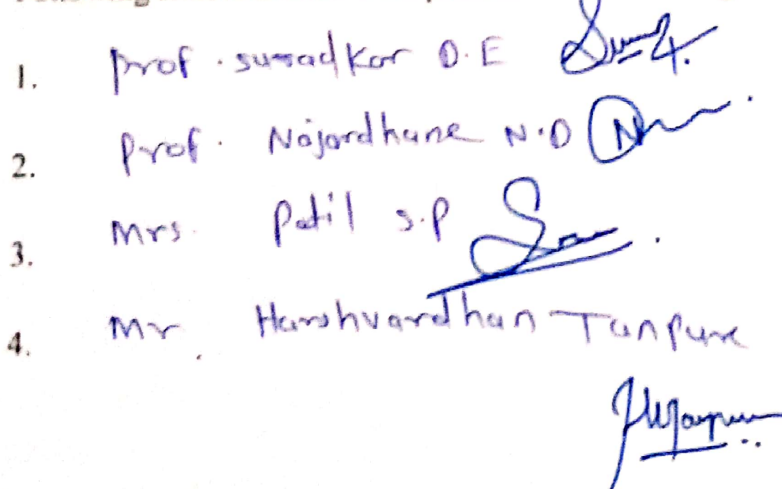 1. Prof. Suradkar D.E
2. Prof. Najardhane N.D
3. Mrs. Patil S.P
4. Mr. Harshvardhan Tanpure